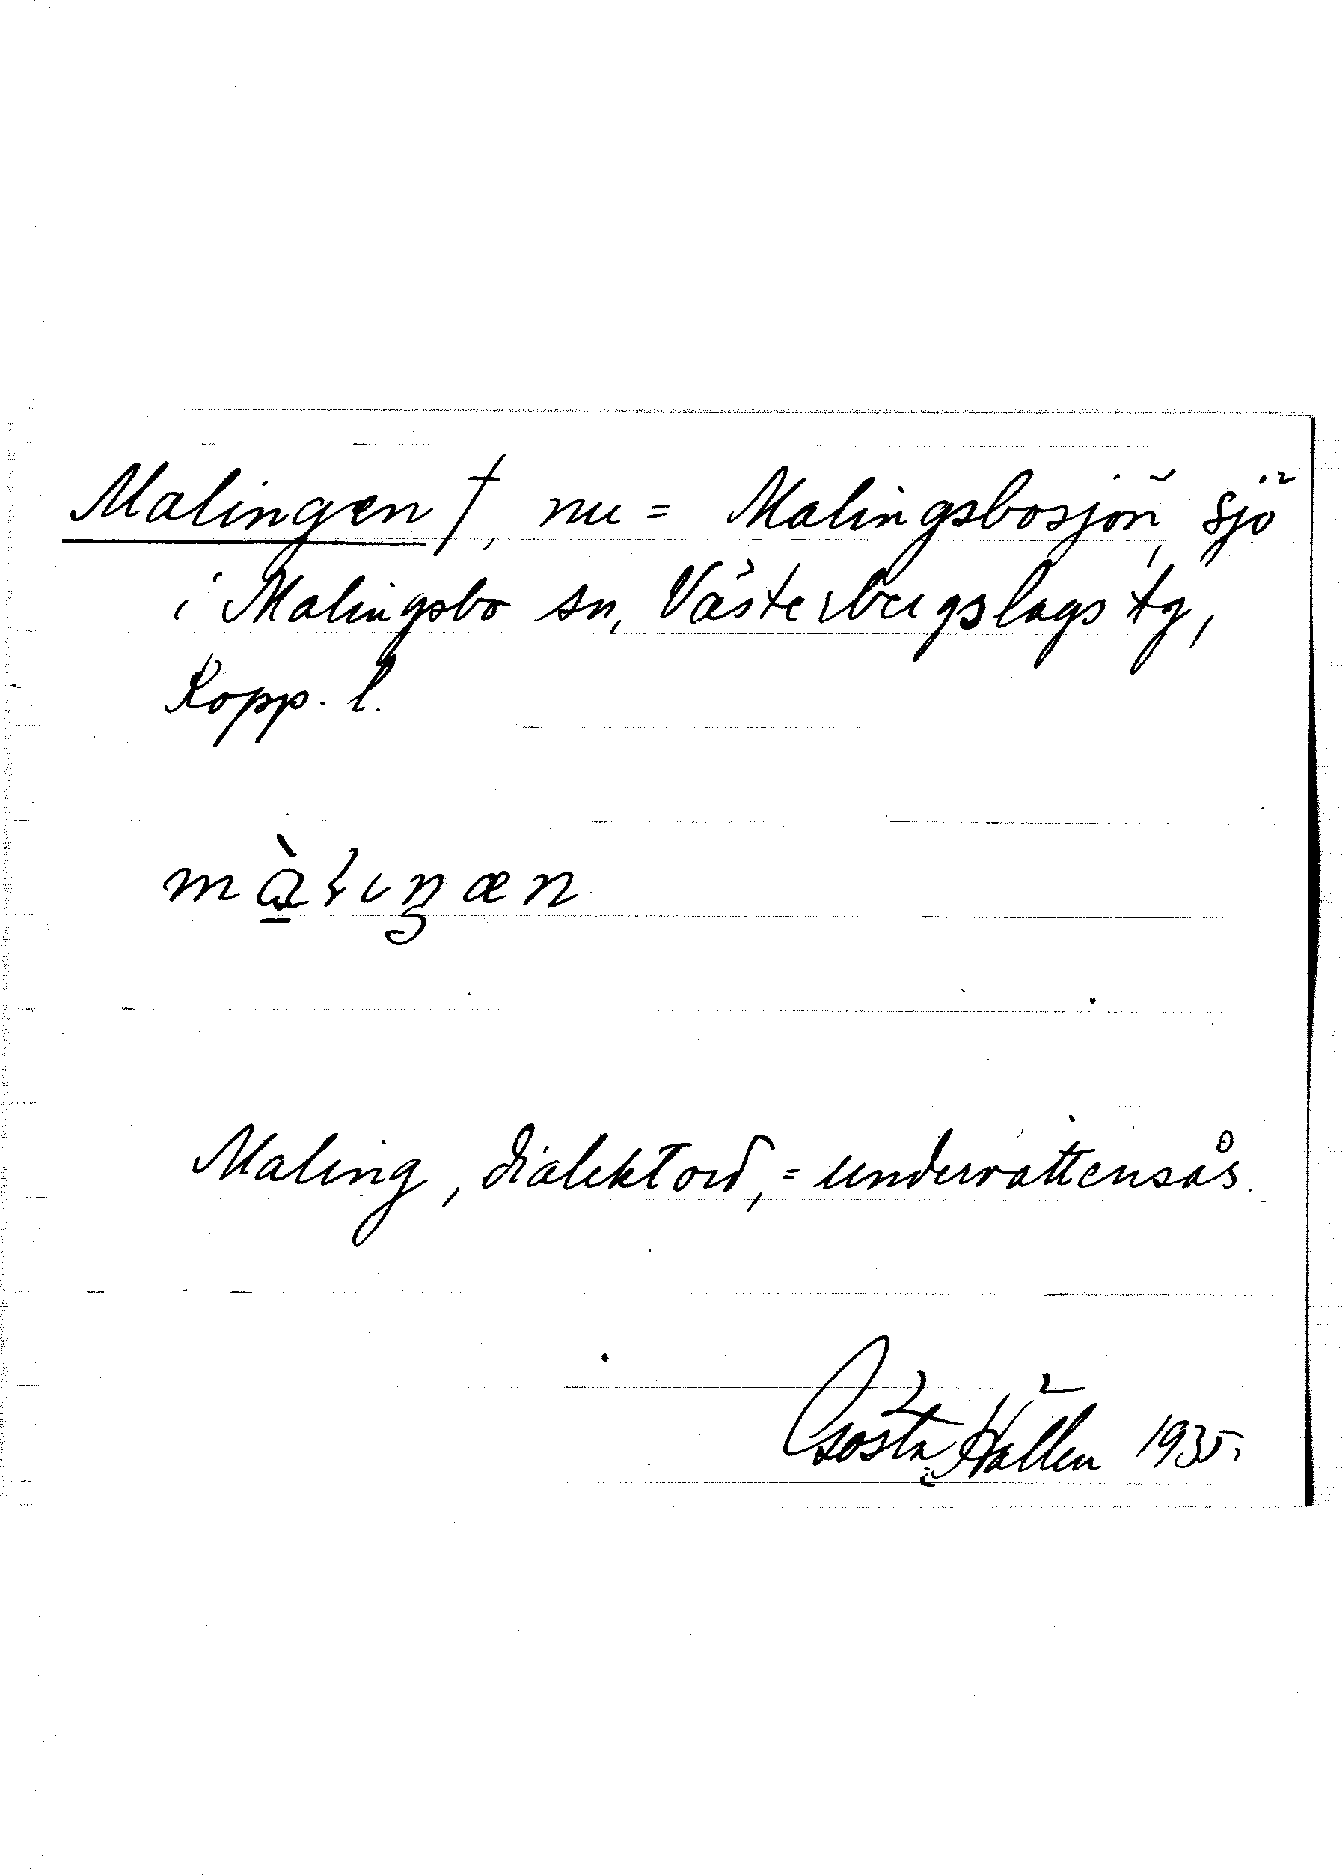 Malingen †, nu = Malingsbosjön, sjö
i Malingsbo sn, Västerbergslags tg,
Kopp. l.
mɑ̱̀ɫıŋæn
Maling, dialektord, = undervattensås.
Gösta Hållen 1935.